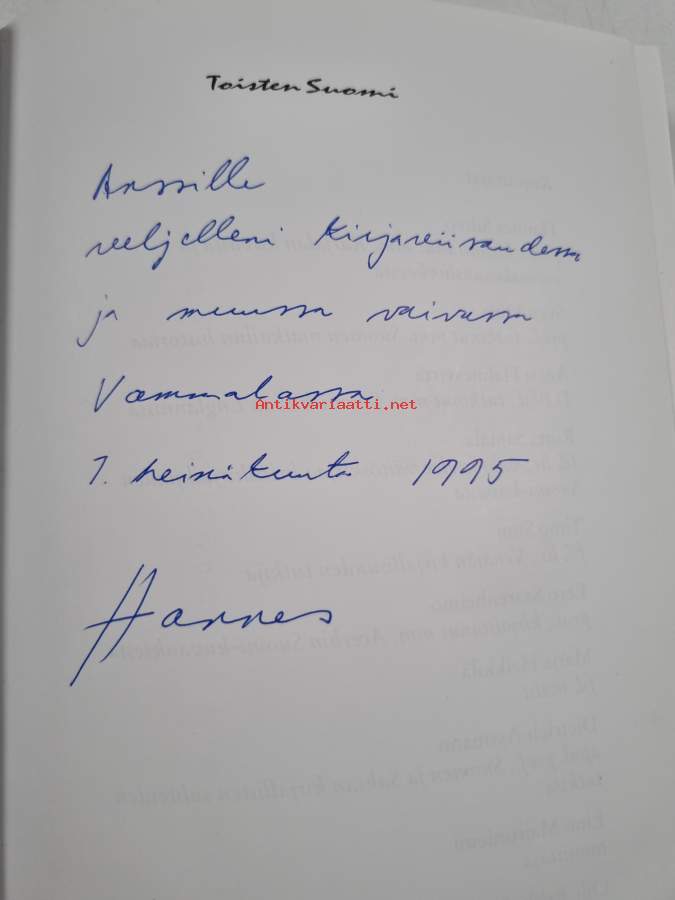 Toisten Suomi
Anssille
veljelleni kirjaviisaudessa
ja muussa vaivassa
Vammalassa
Antikvariaatti.net
1. heinäkuuta 1995
Hannes